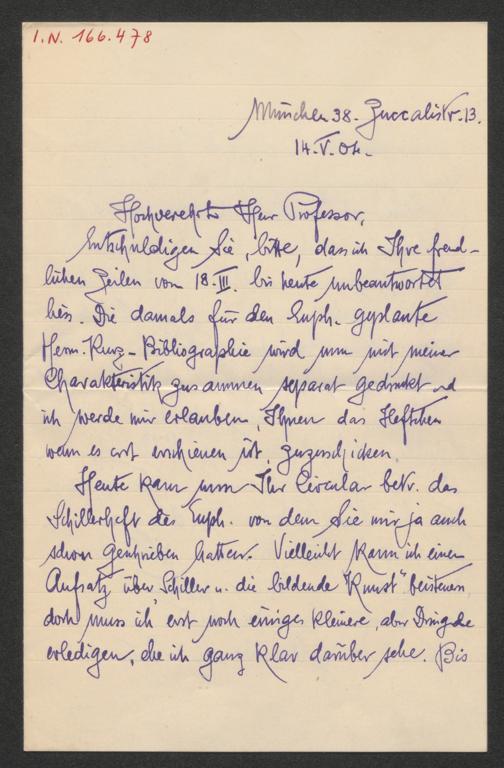 I.N. 166.478
München 38. Zuccalistr. 13.
14. V. 04.
Hochverehrter Herr Professor,
Entschuldigen Sie, bitte, dass ich Ihre freud-
lichen Zeilen vom 18. III. bis heute unbeantwortet
liess. Die damals für den Euph. geplante
Herm. Kurz-Bibliographie wird nun mit meiner
Charakteristik zusammen separat gedruckt und
ich werde mir erlauben, Ihnen das Heftchen
wenn es erst erschienen ist, zuzuschicken.
Heute kam nun Ihr Circular betr. das
Schillerheft des Euph. von dem Sie mir ja auch
schon geschrieben hatten. Vielleicht kann ich einen
Aufsatz über „Schiller u. die bildende Kunst" beisteuern
doch muss ich erst noch einiges kleinere, aber Dringende
erledigen, ehe ich ganz klar darüber sehe. Bis